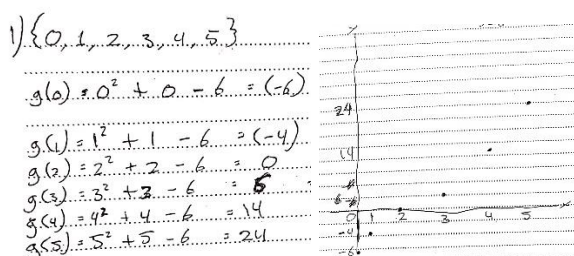 1) {0, 1, 2, 3, 4, 5}
g(0) = 0² + 0 - 6 = (-6)
g(1) = 1² + 1 - 6 = (-4)
g(2) = 2² + 2 - 6 = 0
g(3) = 3² + 3 - 6 = 6
g(4) = 4² + 4 - 6 = 14
g(5) = 5² + 5 - 6 = 24
y
24
14
6
0 1 2 3 4 5 x
-4
-6